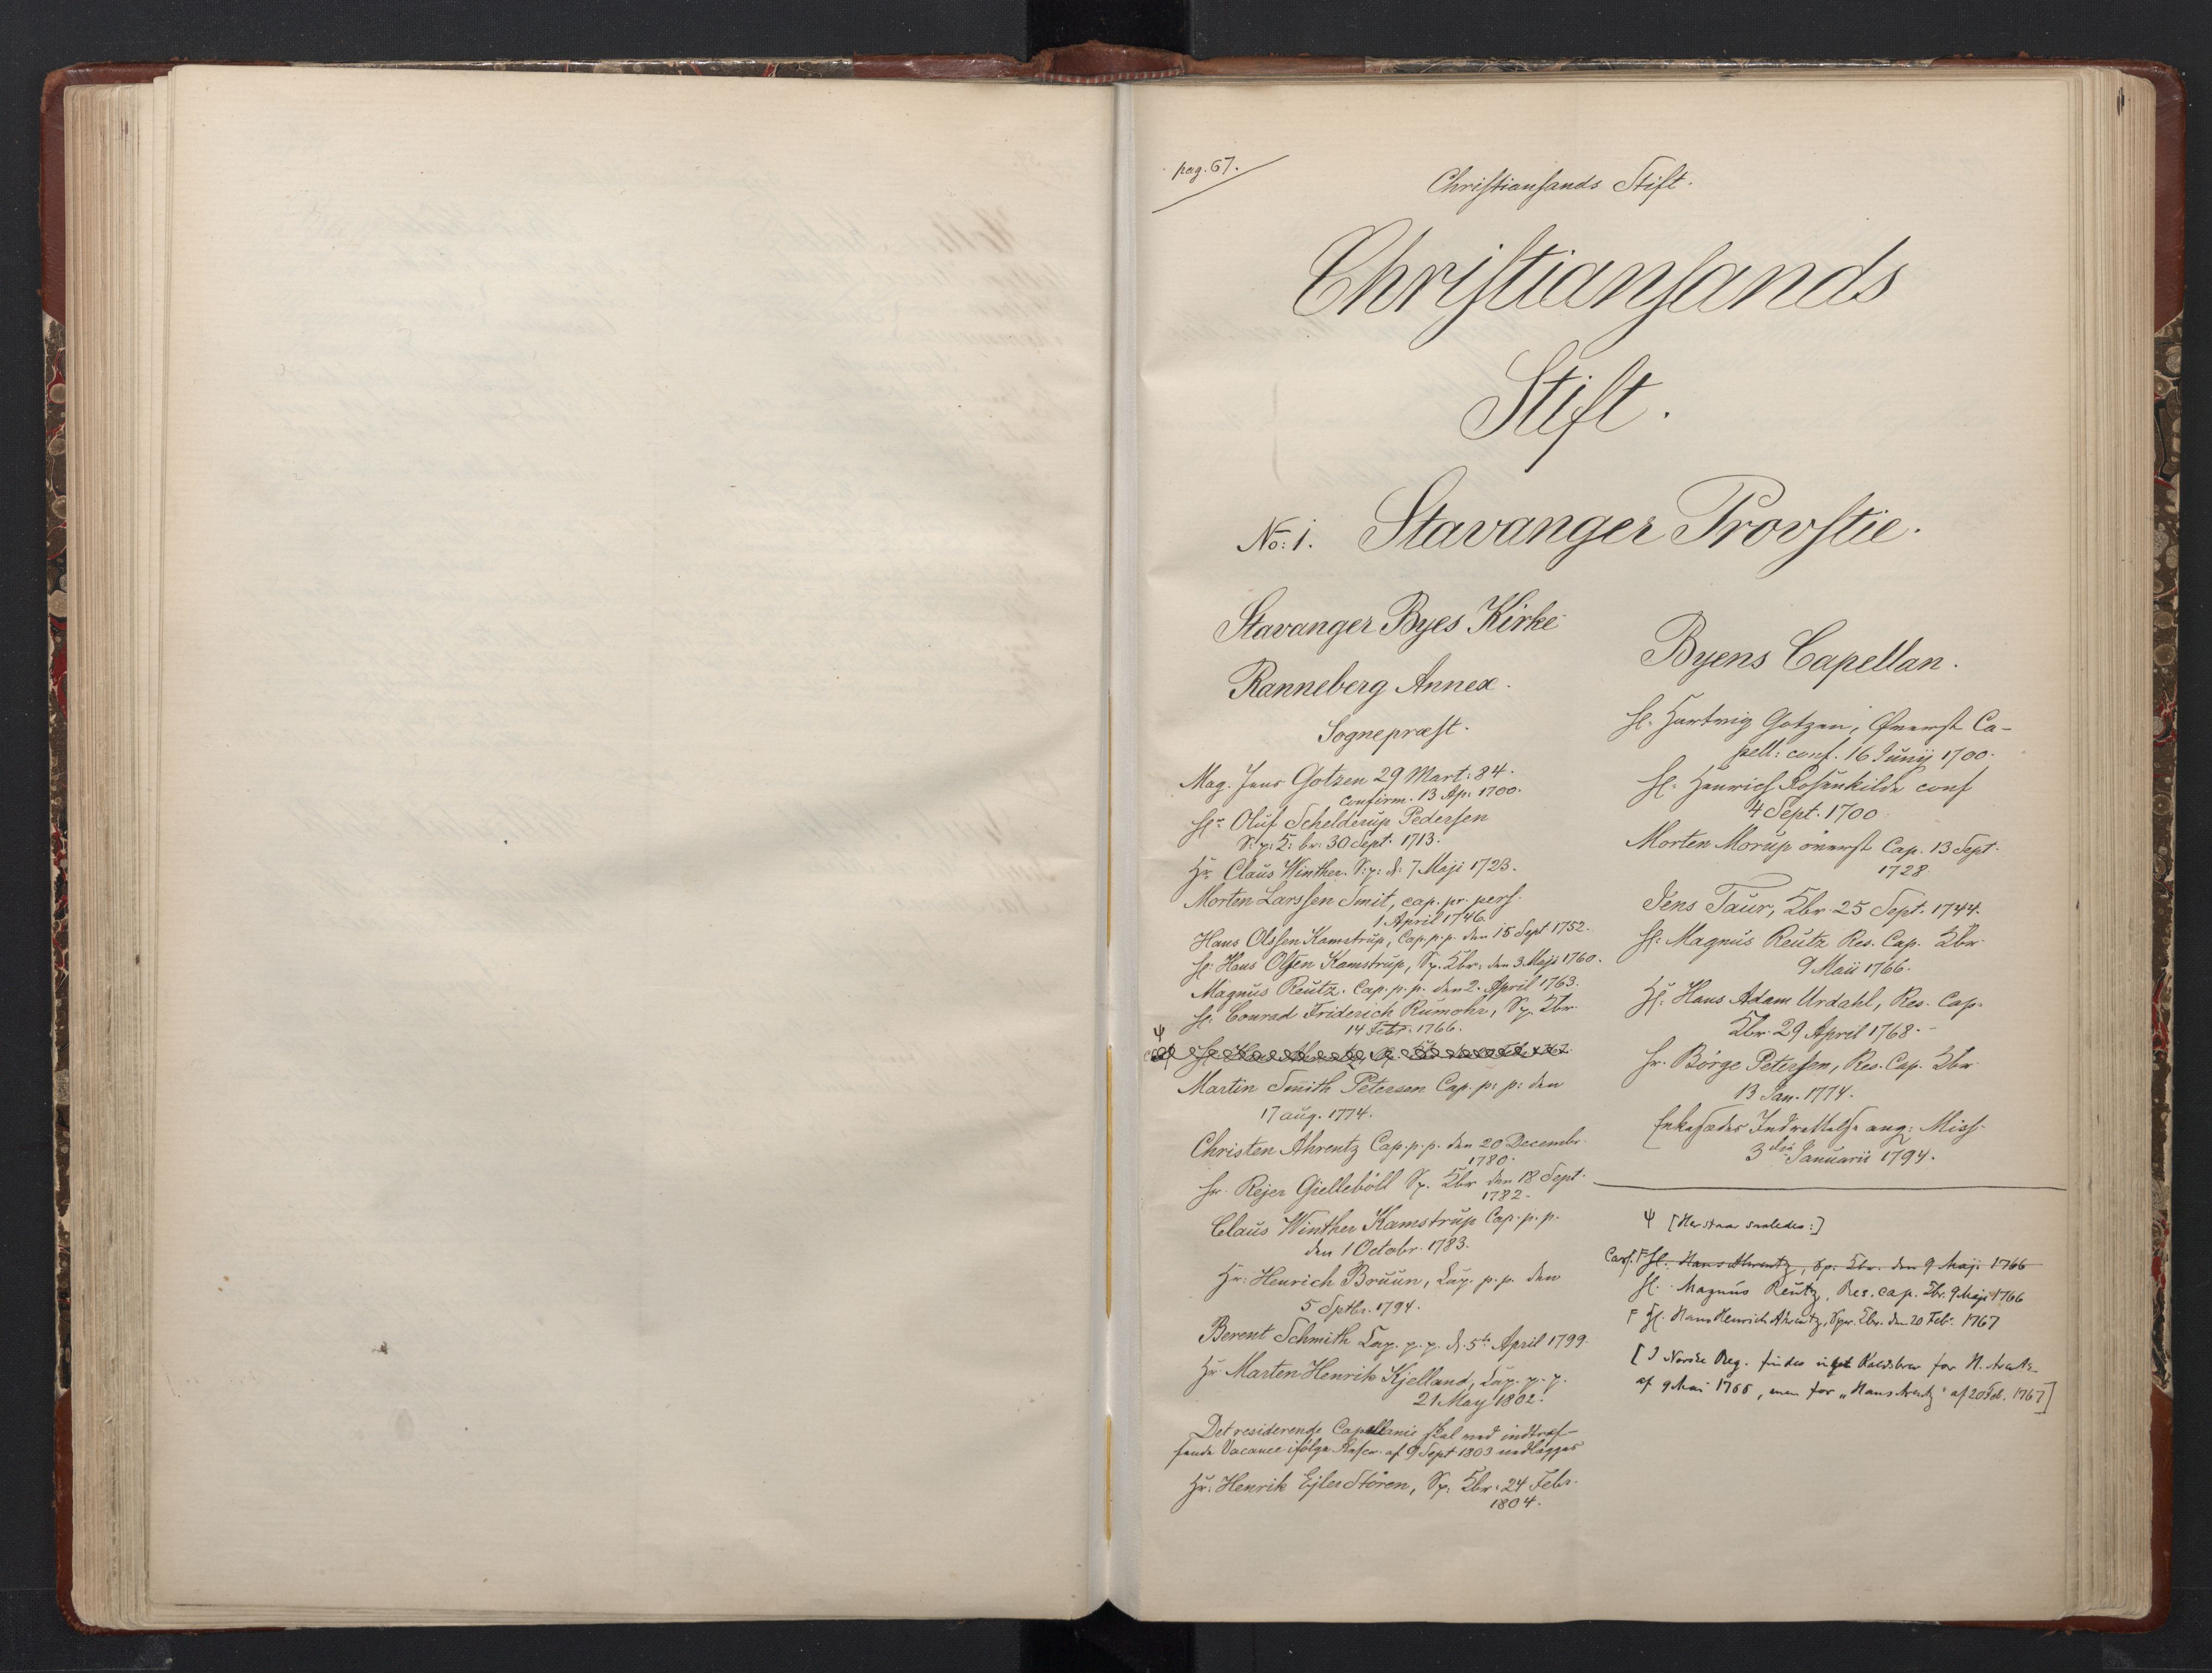 pag. 67.
Christiansands Stift.
Christiansands
Stift.
No: 1. Stavanger Provstie.
Stavanger Byes Kirke
Ranneberg Annex.
Sognepræst.
Mag. Jens Gotzen 29 Mart: 84.
confirm. 13 Ap: 1700.
Hr Oluf Schelderup Pedersen
S: p: K: br: 30 Sept. 1713.
Hr. Claus Winther. S: p: d: 7 Maji 1723.
Morten Larssen Smit, cap. pr. pers.
1. April 1746.
Hans Olssen Kamstrup, Cap. p. p. den 15 Sept 1752.
Hr: Hans Olsen Kamstrup, Sp. Kbr: den 3 Maji 1760.
Magnus Reutz. Cap. p. p. den 2. April 1763.
Hr. Conrad Friderich Rumohr, Sp. Kbr.
14 Febr. 1766.
Ψ
Martin Smith Petersen Cap. p: p: den
17 aug. 1774.
Christen Ahrentz Cap. p. p. den 20 Decembr.
1780.
Hr. Rejer Gielleböll Sp. Kbr den 18 Sept.
1782.
Claus Winther Kamstrup Cap. p. p.
den 1 Octobr. 1783.
Hr: Henrich Bruun, Kap. p. p. den
5 Sptbr. 1794.
Berent Schmith Kap. p. p. d. 5te April 1799.
Hr Marten Henrik Kjelland, Kap. p. p.
21 May 1802.
Det residerende Capellanie skal ved indtræf-
fende Vacance ifølge Rescr. af 9 Sept 1803 nedlægges
Hr: Henrik Ejler Stören, Sp. Kbr: 24 Febr.
1804.
Byens Capellan.
Hr. Hartvig Gotzen, Øverst Ca-
pell: conf. 16 Junij 1700.
Hr. Henrich Rosenkilde conf
4 Sept. 1700
Morten Morup överst Cap. 13 Sept.
1728
Jens Taur, Kbr. 25 Sept. 1744.
Hr: Magnus Reutz Res. Cap. Kbr.
9 Maii 1766.
Hr: Hans Adam Urdahl, Res. Cap.
Kbr. 29 April 1768.
Hr. Börge Petersen, Res. Cap. Kbr
13 Jan. 1774.
Enkesædes Indrettelse ang: Miss.
3die Januarii 1794.
Ψ [Her staar saaledes:]
Hr. Hans Ahrentz, Sp. Kbr. den 9 Maji 1766
Hr. Magnus Reutz, Res. cap. Kbr. 9 Maji 1766
F Hr. Hans Henrich Ahrentz, Spr. Kbr. den 20 Feb. 1767
[I Norske Reg. findes intet Kaldsbrev for H. Arentz
af 9 Mai 1766, men for „Hans Arentz" af 20 Feb. 1767]